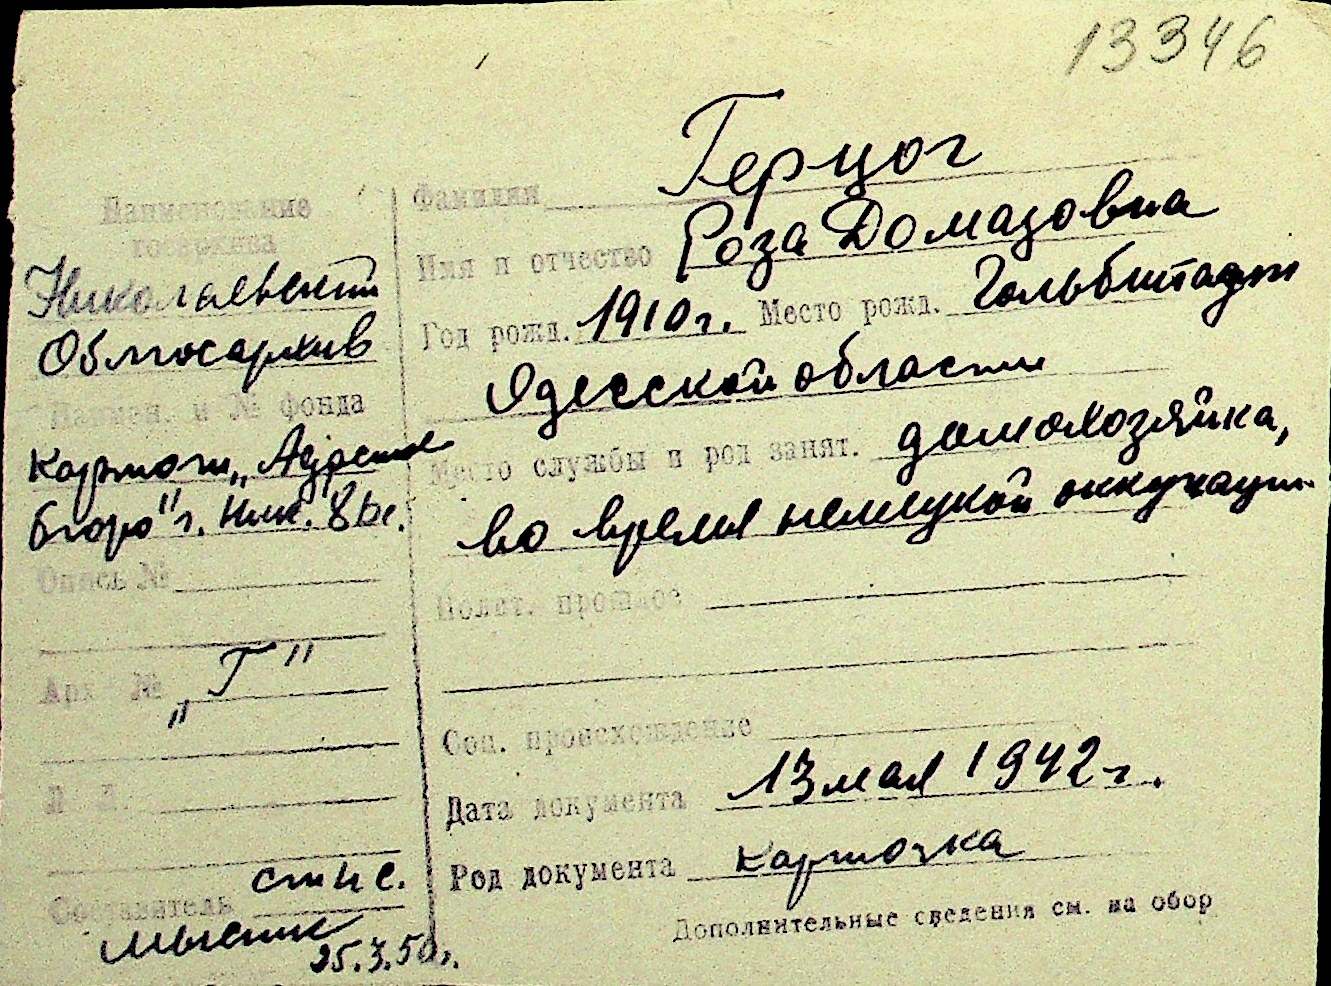 13346
Наименование
госархива
Николаевский
Облгосархив
Наимен. и № фонда
Картот. „Адресное
бюро" г. Ник.
Опись №
Арх №
„Г"
Л. Л.
ст. н с.
Составитель
25.3.50г.
Фамилия Герцог
Имя и отчество Роза Домазовна
Год рожд. 1910г. Место рожд. Гальбштадт
Одесской области
Место службы и род занят. домохозяйка,
во время немецкой оккупации
Полит. прошлое
Соц. происхождение
Дата документа 13 мая 1942 г.
Род документа карточка
Дополнительные сведения см. на обор